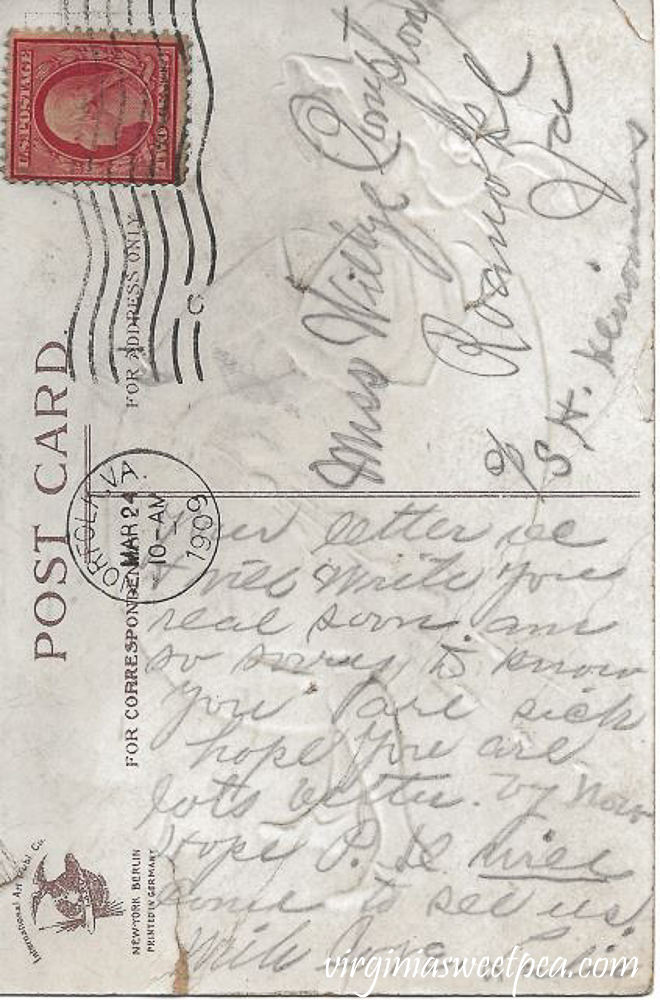 POST CARD.
FOR ADDRESS ONLY
FOR CORRESPONDENCE
U.S. POSTAGE
TWO CENTS
NORFOLK, VA
MAR 24
10-AM
1909
C
Miss Wilbye
Roanoke
Va
c/o
S. H.
Your letter
I will write you
real soon am
so sorry to know
you are sick
hope you are
lots better by now
Hope P. will
come to see us
Write
International Art Publ. Co.
NEW-YORK BERLIN
PRINTED IN GERMANY
virginiasweetpea.com